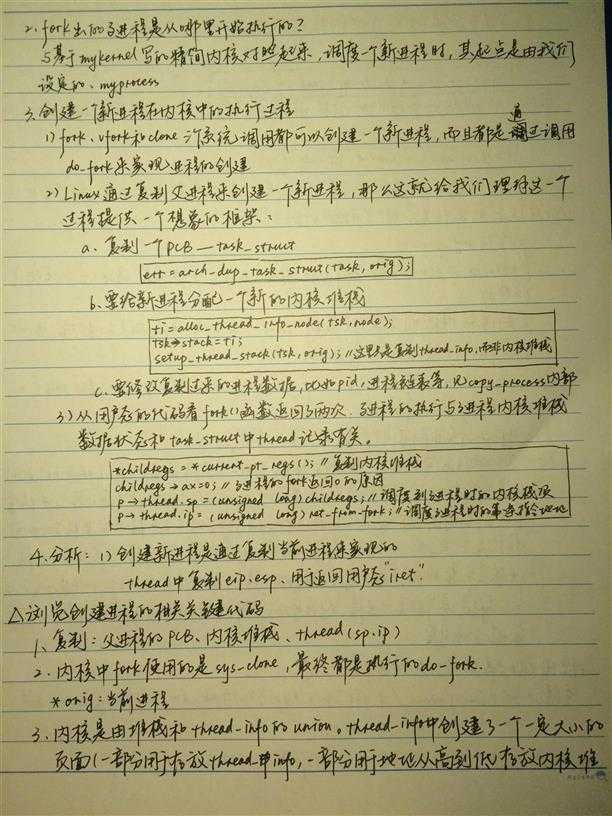 2. fork出的子进程是从哪里开始执行的？
与基于mykernel写的精简内核对照起来，调度一个新进程时，其起点是由我们
设定的、myprocess
3. 创建一个新进程在内核中的执行过程
1) fork、vfork和clone三个系统调用都可以创建一个新进程，而且都是通过调用
do_fork来实现进程的创建
2) Linux通过复制父进程来创建一个新进程，那么这就给我们理解这一个
过程提供一个想象的框架：
a. 复制一个PCB—task_struct
err = arch_dup_task_strut(task, orig);
b. 要给新进程分配一个新的内核堆栈
ti = alloc_thread_info_node(tsk, node);
tsk→stack = ti;
setup_thread_stack(tsk, orig); //这里只是复制thread_info，而非内核堆栈
c. 要修改复制过来的进程数据，比如pid，进程链表等，见copy_process内部
3) 从用户态的代码看fork()函数返回了两次. 子进程的执行与子进程内核堆栈
数据状态和task_struct中thread记录有关。
*childregs = *current_pt_regs(); //复制内核堆栈
childregs→ax=0; //子进程的fork返回0的原因
p→thread.sp=(unsigned long)childregs; //调度到子进程时的内核栈顶
p→thread.ip = (unsigned long)ret_from_fork; //调度子进程时的第一条指令地址
4. 分析：1) 创建新进程是通过复制当前进程来实现的
thread中复制eip、esp、用于返回用户态"iret".
△浏览创建进程的相关关键代码
1、复制：父进程的PCB、内核堆栈、thread(sp.ip)
2. 内核中fork使用的是sys_clone，最终都是执行的do_fork.
*orig:当前进程
3. 内核是由堆栈和thread_info的union。thread_info中创建了一个一定大小的
页面(一部分用于存放thread_info，一部分用于地址从高到低存放内核堆